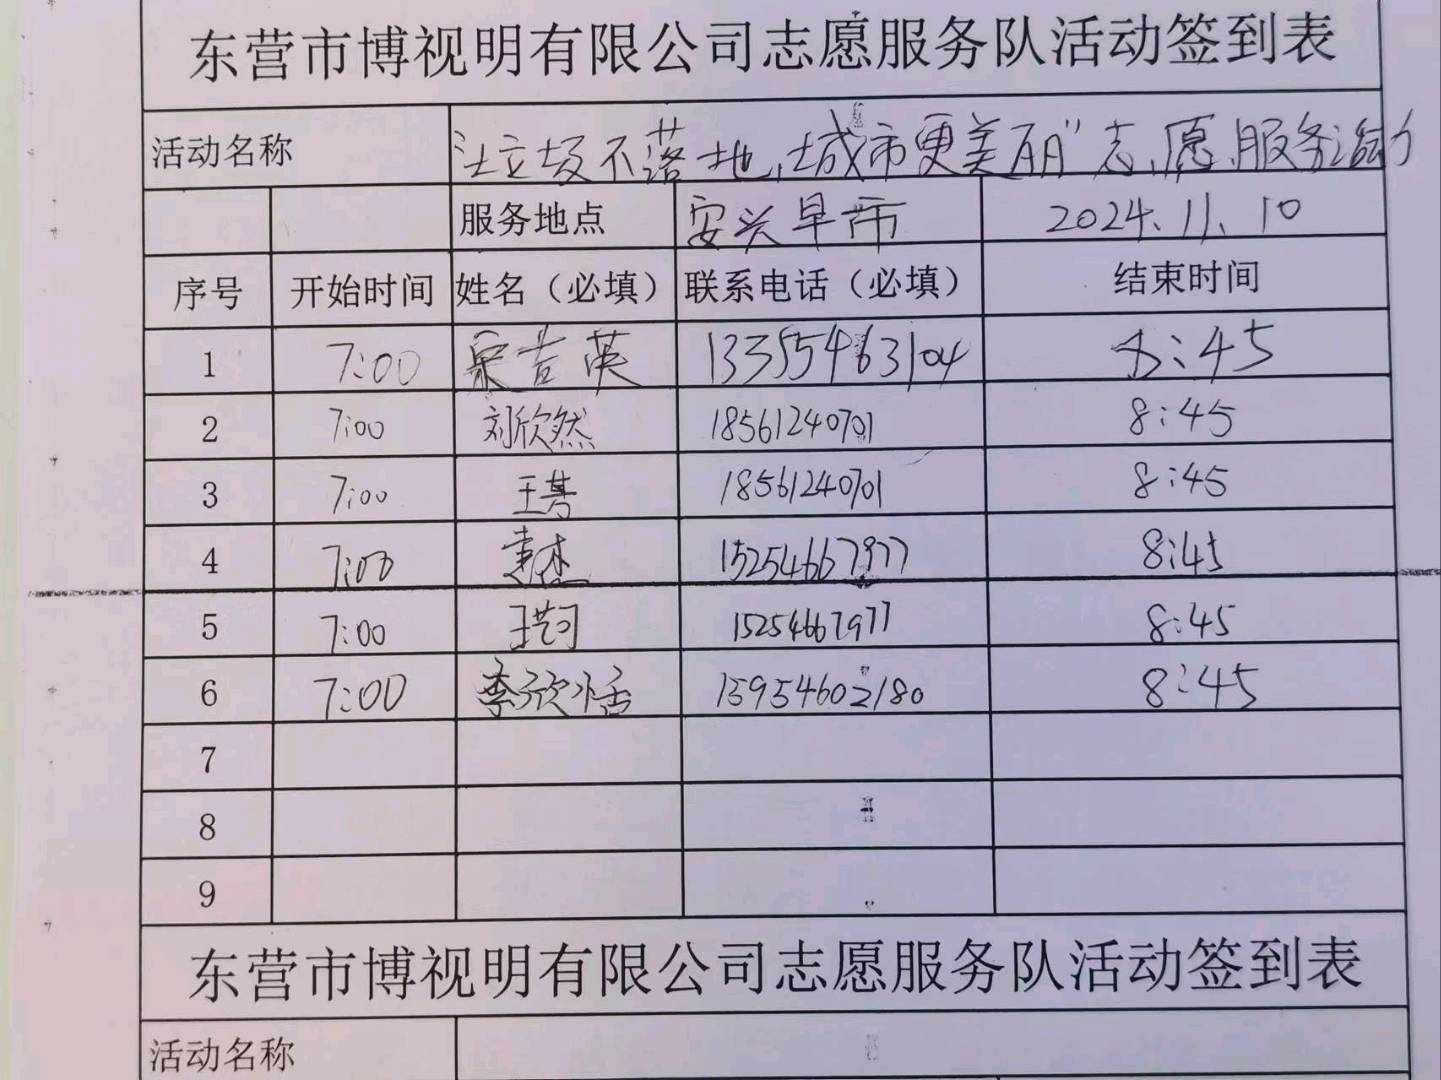 东营市博视明有限公司志愿服务队活动签到表
活动名称 垃圾不落地,城市更美丽"志愿服务活动
服务地点 安兴早市 2024.11.10
序号 开始时间 姓名（必填） 联系电话（必填） 结束时间
1 7:00 宋吉英 13355463104 8:45
2 7:00 刘欣然 18561240701 8:45
3 7:00 18561240701 8:45
4 7:00 15254667977 8:45
5 7:00 15254667977 8:45
6 7:00 李欣恬 15954602180 8:45
7
8
9
东营市博视明有限公司志愿服务队活动签到表
活动名称